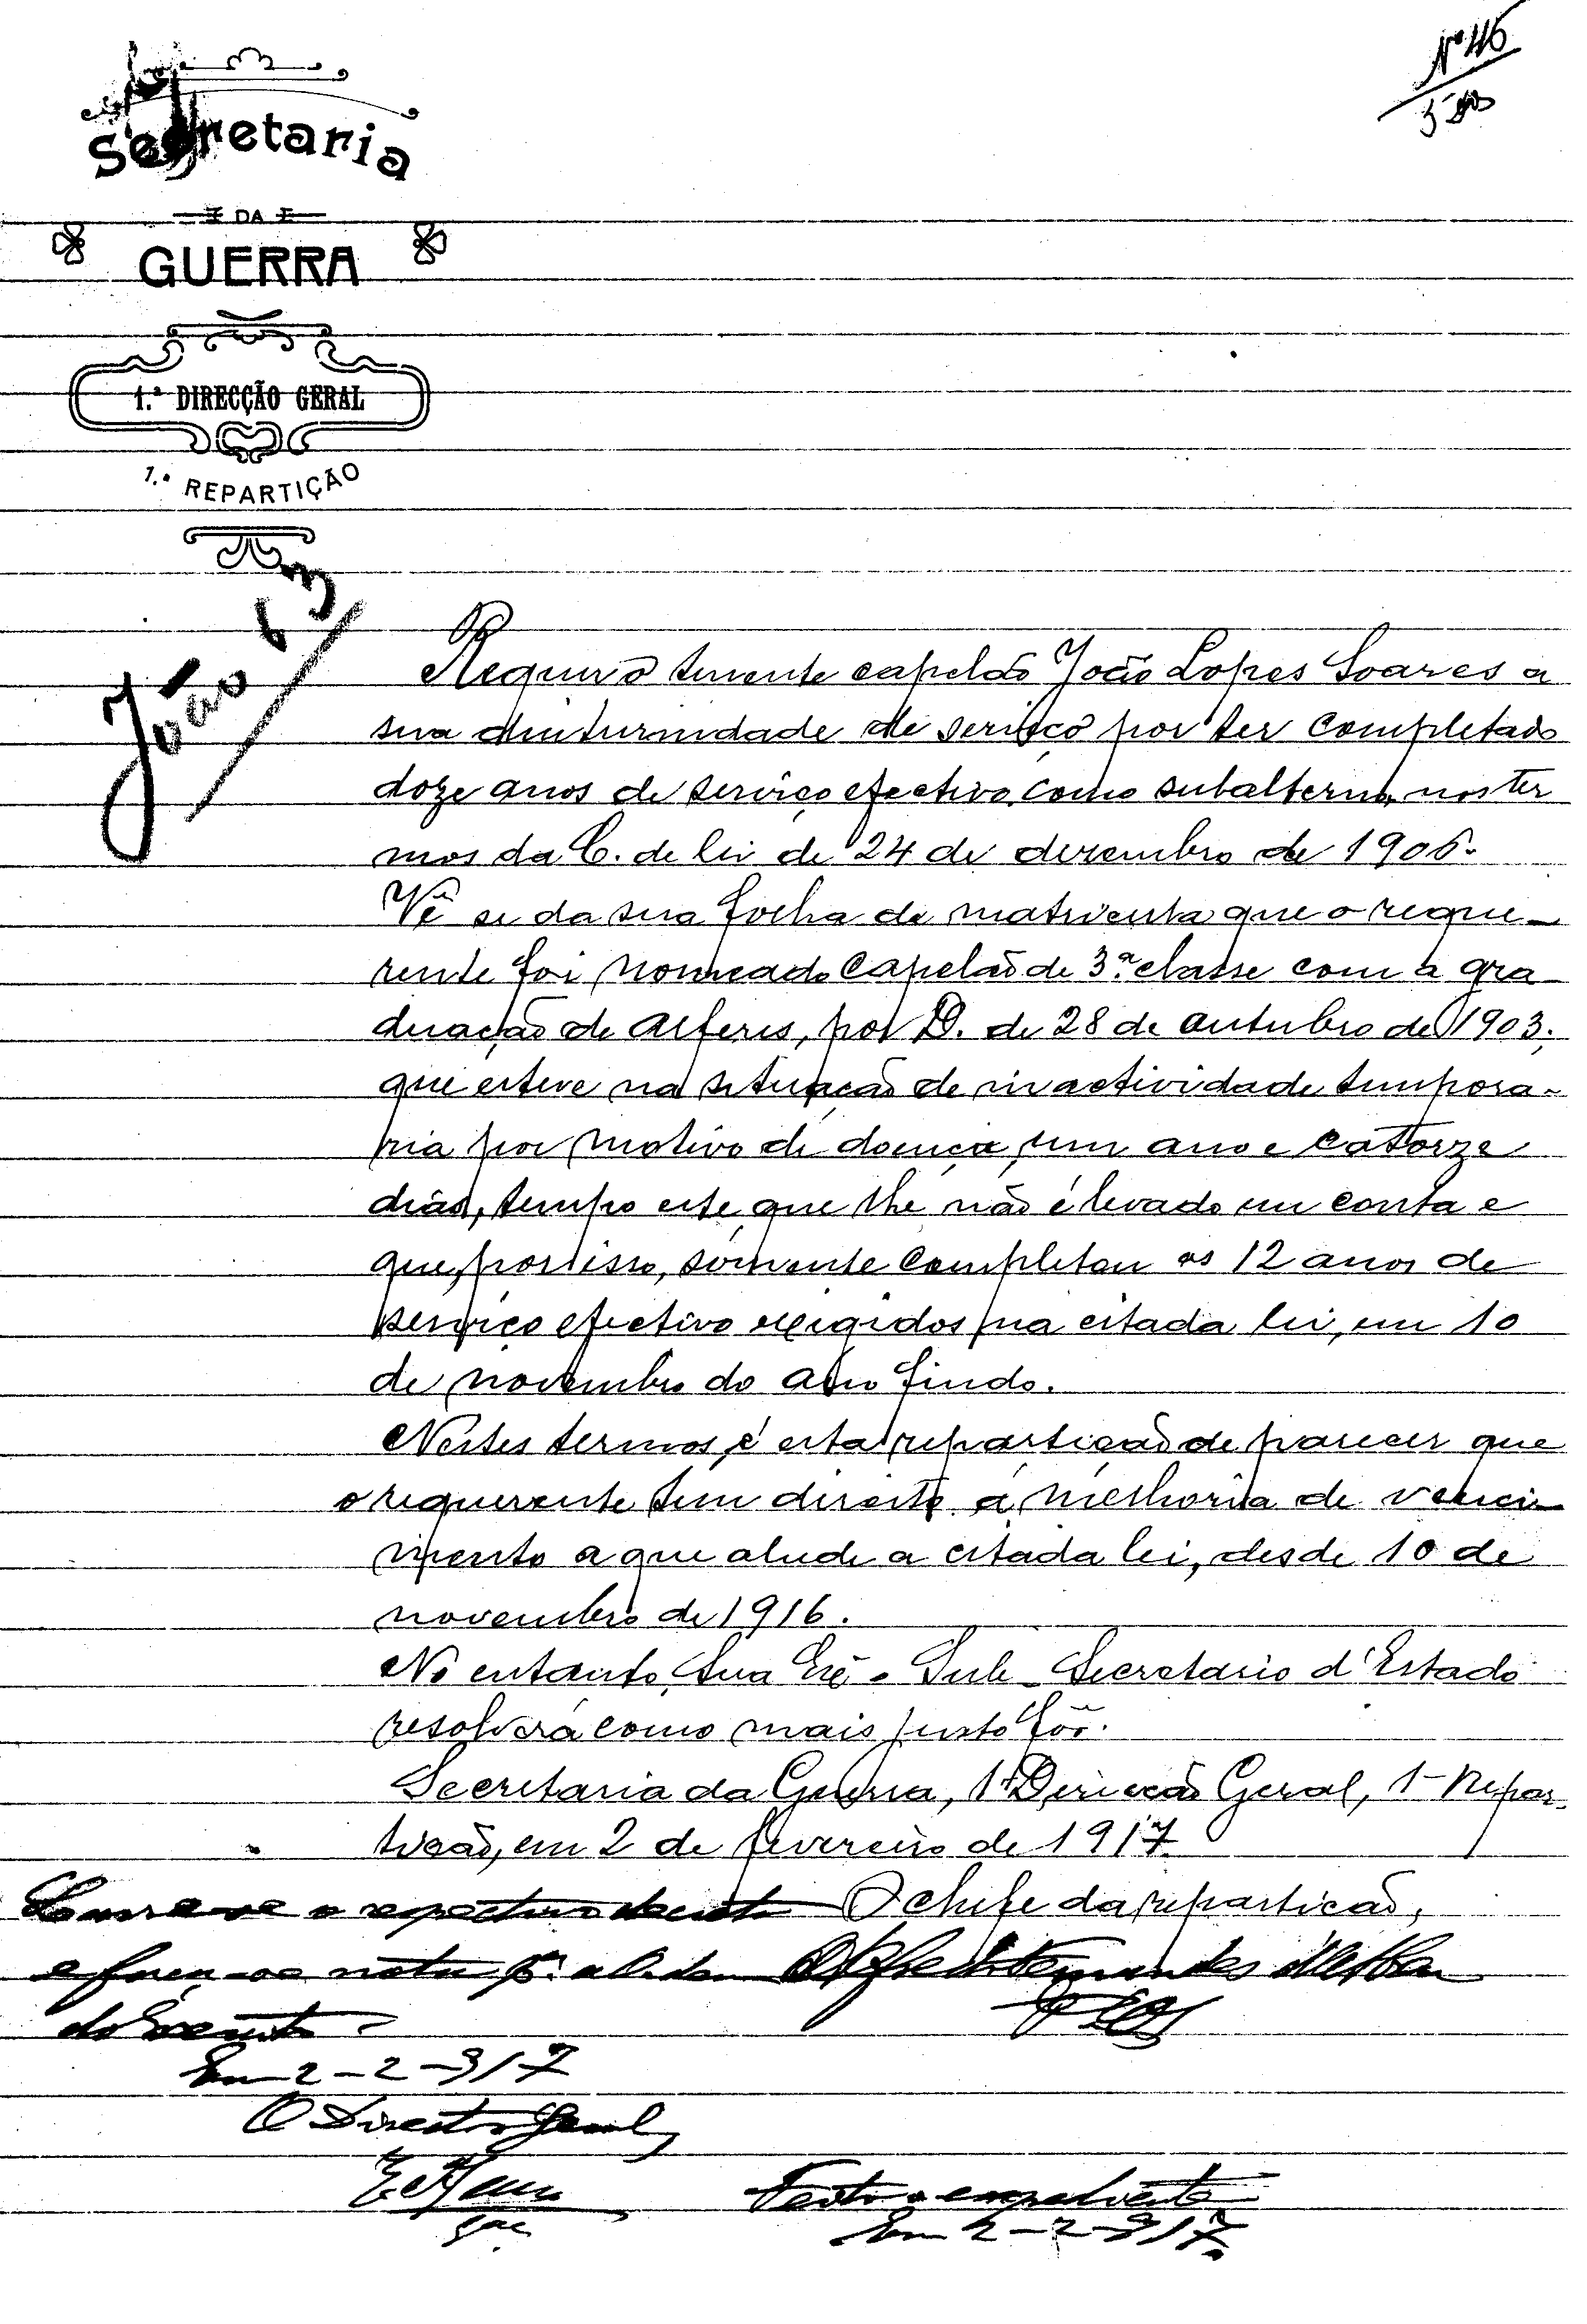 Secretaria
DA
GUERRA
1.ª DIRECÇÃO GERAL
1.ª REPARTIÇÃO
Nº 46
João 63
Requer o tenente capelão João Lopes Soares a
sua diuturnidade de serviço por ter completado
doze anos de serviço efectivo como subalterno, nos ter
mos da C. de lei de 24 de dezembro de 1906.
Vê se da sua folha de matricula que o reque-
rente foi nomeado capelão de 3.ª classe com a gra
duação de alferes, por D. de 28 de outubro de 1903;
que esteve na situação de inactividade tempora-
ria por motivo de doença, um ano e catorze
dias, tempo este que lhe não é levado em conta e
que, por isso, sómente completou os 12 anos de
serviço efectivo exigidos na citada lei, em 10
de novembro do ano findo.
Nestes termos, é esta repartição de parecer que
o requerente tem direito á melhoria de venci-
mento a que alude a citada lei, desde 10 de
novembro de 1916.
No entanto, Sua Exª o Sub-Secretario d'Estado
resolverá como mais justo fôr.
Secretaria da Guerra, 1ª Direcção Geral, 1ª Repar-
tição, em 2 de fevereiro de 1917.
O chefe da repartição,
Lavre-se o respectivo decreto
e faça-se nota pª a Ordem
do Exercito.
Em 2-2-917
O Director Geral,
Feito o expediente
Em 2-2-917.